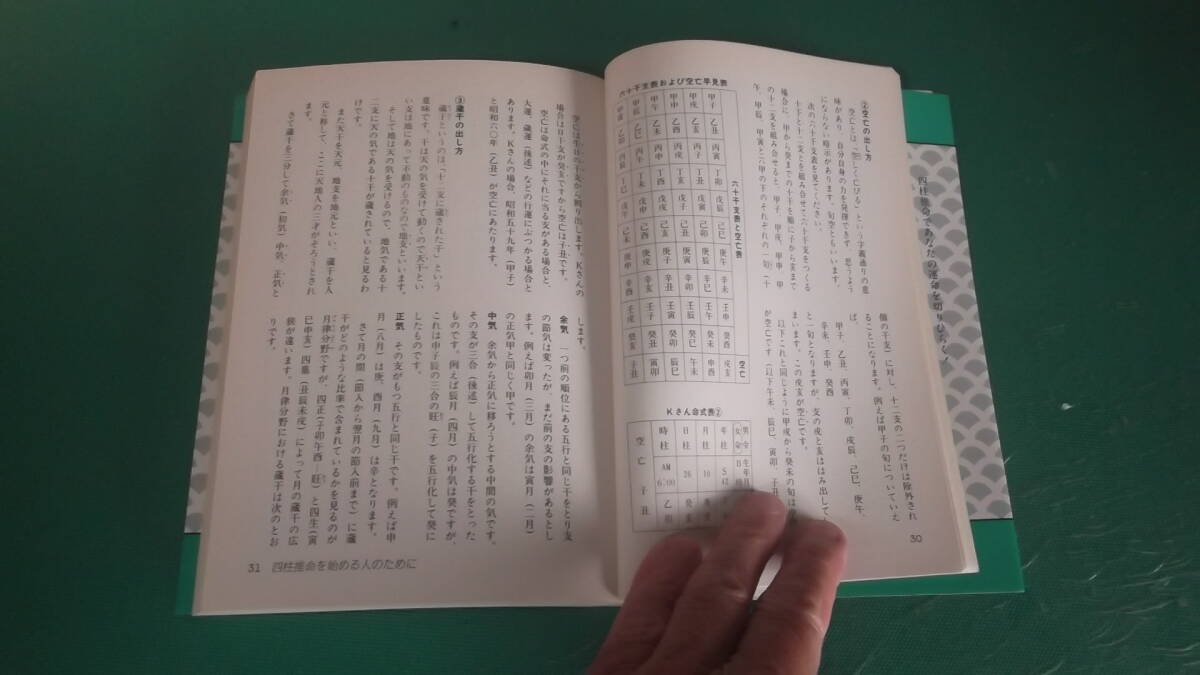 四柱推命であなたの運命を切りひらく！
②空亡の出し方
空亡とは、「空しく亡びる」という字義通りの意
味があり、自分自身の力を発揮できず、想うよう
にならない暗示があります。旬空ともいいます。
次の六十干支表を見てください。
十干と十二支とを組み合せて六十干支をつくる
場合に、甲から癸までの十干を順に子から亥まで
の十二支を組み合せると、甲子、甲戌、甲申、甲
午、甲辰、甲寅と六甲の下のそれぞれの一旬（十
六十干支表および空亡早見表
六十干支表と空亡表
空亡
甲子 乙丑 丙寅 丁卯 戊辰 己巳 庚午 辛未 壬申 癸酉 戌亥
甲戌 乙亥 丙子 丁丑 戊寅 己卯 庚辰 辛巳 壬午 癸未 申酉
甲申 乙酉 丙戌 丁亥 戊子 己丑 庚寅 辛卯 壬辰 癸巳 午未
甲午 乙未 丙申 丁酉 戊戌 己亥 庚子 辛丑 壬寅 癸卯 辰巳
甲辰 乙巳 丙午 丁未 戊申 己酉 庚戌 辛亥 壬子 癸丑 寅卯
甲寅 乙卯 丙辰 丁巳 戊午 己未 庚申 辛酉 壬戌 癸亥 子丑
個の干支）に対し、十二支の二つだけは除外され
ることになります。例えば甲子の旬についていえ
ば、
甲子、乙丑、丙寅、丁卯、戊辰、己巳、庚午、
辛未、壬申、癸酉
と一旬となりますが、支の戌と亥ははみ出して
まいます。この戌亥が空亡です。
以下これと同じように甲戌から癸未の旬は
が空亡です（以下午未、辰巳、寅卯、子丑
Kさん命式表②
男命
女命
生年月
年柱
月柱 10
日柱 26 癸亥
時柱 AM 6:00 乙卯
空亡 子丑
30
空亡は生日の干支から割り出します。Kさんの
場合は日干支が癸亥ですから空亡は子丑です。
空亡は命式の中にそれに当る支がある場合と、
大運、歳運（後述）などの行運にぶつかる場合と
あります。Kさんの場合、昭和五十九年（甲子）
と昭和六〇年（乙丑）が空亡にあたります。
③蔵干の出し方
蔵干というのは、「十二支に蔵された干」という
意味です。干は天の気を受けて動くので天干とい
い支は地にあって不動のものなので地支といいます。
そして地は天の気を受けるので、地気である十
二支に天の気である十干が蔵されていると見るわ
けです。
また天干を天元、地支を地元といい、蔵干を人
元と称して、ここに天地人の三才がそろうとされ
ます。
さて蔵干を三分して余気（初気）中気、正気と
します。
余気 一つ前の順位にある五行と同じ干をとり支
の節気は変ったが、まだ前の支の影響があるとし
ます。例えば卯月（三月）の余気は寅月（二月）
の正気甲と同じく甲です。
中気 余気から正気に移ろうとする中間の気です。
その支が三合（後述）して五行化する干をとった
ものです。例えば辰月（四月）の中気は癸ですが、
これは申子辰の三合の旺（子）を五行化して癸に
したものです。
正気 その支がもつ五行と同じ干です。例えば申
月（八月）は庚、酉月（九月）は辛となります。
さて月の間（節入から翌月の節入前まで）に蔵
干がどのような比率で含まれているかを見るのが
月律分野ですが、四正（子卯午酉―旺）と四生（寅
巳申亥）四墓（丑辰未戌）によって月の蔵干の広
候が違います。月律分野における蔵干は次のとお
りです。
31 四柱推命を始める人のために